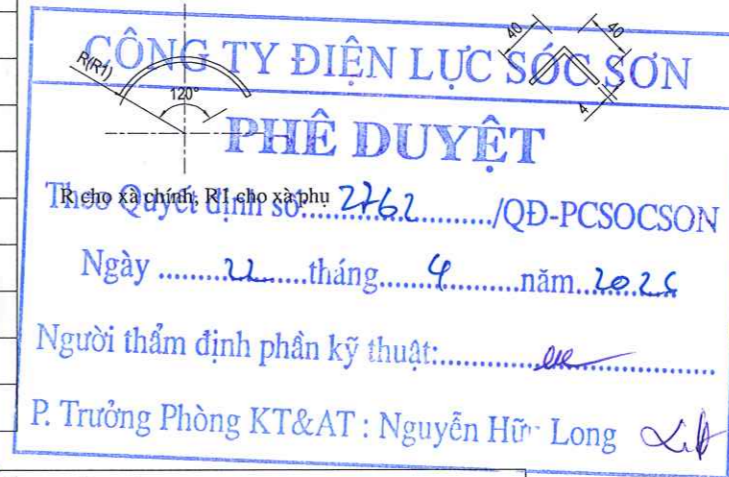 40 40
R(R1)
CÔNG TY ĐIỆN LỰC SÓC SƠN
120°
4
PHÊ DUYỆT
R cho xà chính; R1 cho xà phụ
Theo Quyết định số:....2762............/QĐ-PCSOCSON
Ngày ........22.......tháng......4..........năm..........
Người thẩm định phần kỹ thuật:..............................
P. Trưởng Phòng KT&AT : Nguyễn Hữu Long